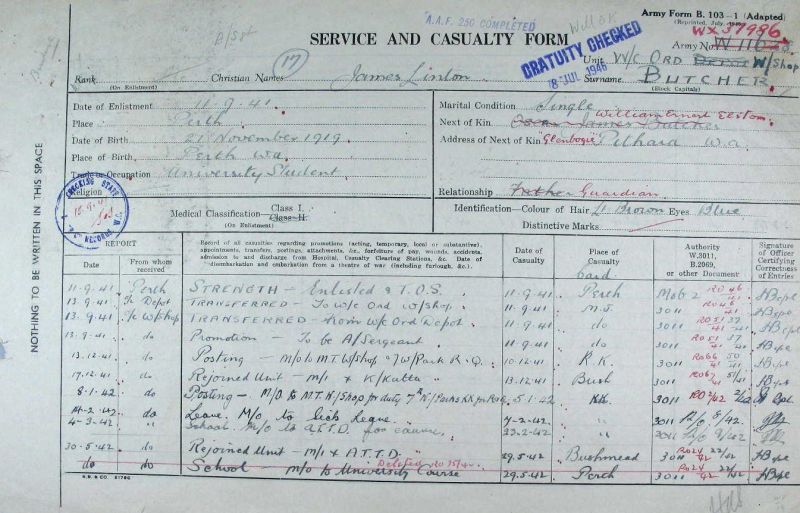 A.A.F. 250 COMPLETED
Army Form B. 103—1 (Adapted)
(Reprinted, July,
WX37986
SERVICE AND CASUALTY FORM
GRATUITY CHECKED
8 JUL 1946
Army No. W 116
Unit W/c Ord Depot W/Shop
Rank
(On Enlistment)
Christian Names (17) James Linton
Surname BUTCHER
(Block Capitals)
Date of Enlistment 11.9.41.
Place Perth
Date of Birth 21st November 1919.
Place of Birth Perth W.A.
Trade or Occupation University Student
Religion
Medical Classification— Class I.
Class II.
(On Enlistment)
Marital Condition Single
William Ernest Elston
Next of Kin James Butcher
Address of Next of Kin "Glenbogie" Pithara W.A.
Relationship Father Guardian
Identification—Colour of Hair Lt Brown Eyes Blue
Distinctive Marks
CHECKING STAFF
RECORDS W.C.
NOTHING TO BE WRITTEN IN THIS SPACE
REPORT
Date
From whom received
Record of all casualties regarding promotions (acting, temporary, local or substantive), appointments, transfers, postings, attachments, &c., forfeiture of pay, wounds, accidents, admission to and discharge from Hospital, Casualty Clearing Stations, &c. Date of disembarkation and embarkation from a theatre of war (including furlough, &c.).
Date of Casualty
Place of Casualty
Card
Authority W.3011, B.2069, or other Document
Signature of Officer Certifying Correctness of Entries
11.9.41 Perth STRENGTH — Enlisted & T.O.S. 11.9.41 Perth Mob 2 RO 46/41
13.9.41 Depot TRANSFERRED — To W/c Ord W/shop 11.9.41 3011 RO 46/41
13.9.41 W/Shop TRANSFERRED — from W/c Ord Depot 11.9.41 do 3011 RO 51 37/41
13.9.41 do Promotion — To be A/Sergeant 11.9.41 do 3011 RO 51 37/41
13.12.41 do Posting — m/o to M.T. W/shop 10.12.41 K.K. 3011 RO 66 50/41
17.12.41 do Rejoined Unit — m/i & K/Katta 13.12.41 Bush 3011 RO 67 51/41
8.1.42 do Posting — M/O to M.T. W/Shop for duty 5.1.42 KK 3011 RO 2/42 2/42
14-2-42 do Leave. M/O to Sick Leave. 7-2-42 " 3011 8/42
4-3-42 " School. M/O to A.T.T.D for course. 23-2-42 " 3011 9/42
30.5.42 do Rejoined Unit — m/i & A.T.T.D. 29.5.42 Bushmead 3011 RO 24/42 22/42
do do School — m/o to University Course Deleted 29.5.42 Perth 3011 RO 24/42 22/42